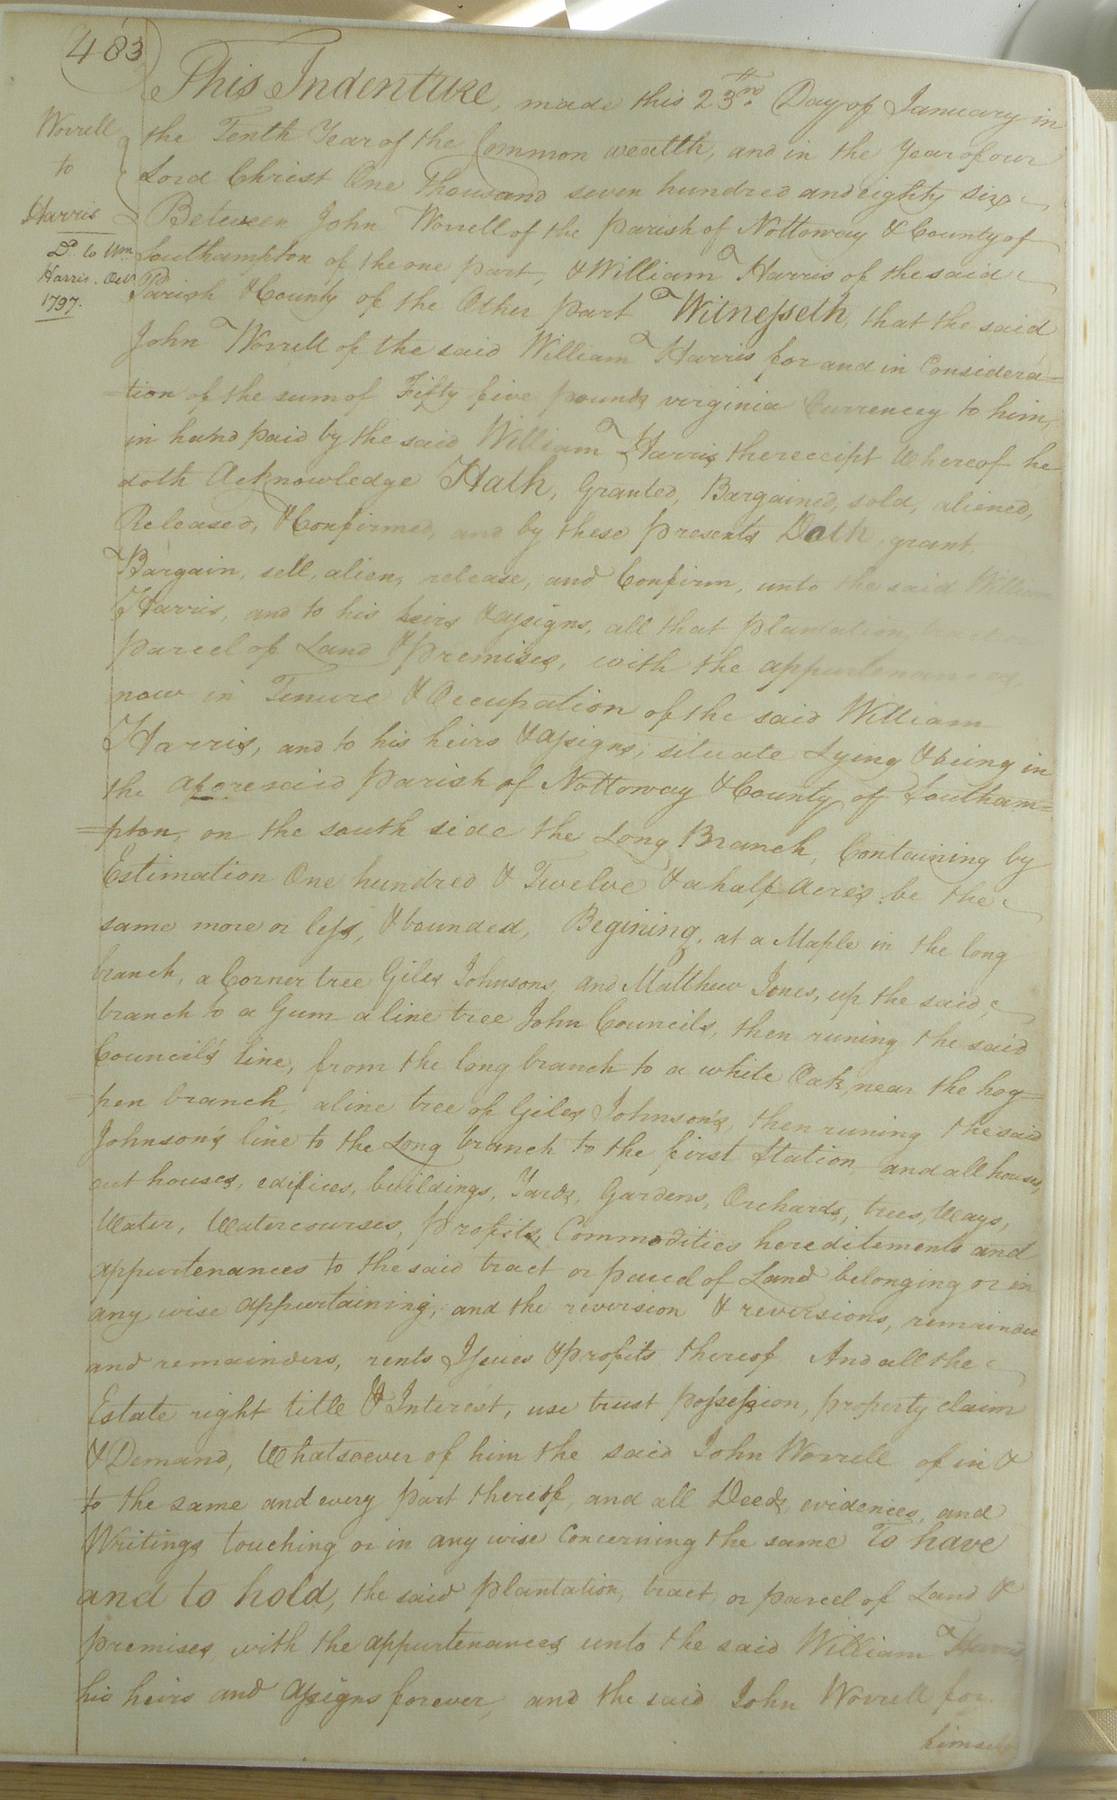 483
Worrell
to
Harris
Dd. to Wm.
Harris. Octr.
1797.
This Indenture, made this 23nd. Day of January in
the Tenth Year of the Common wealth, and in the Year of our
Lord Christ One Thousand seven hundred and eighty six
Between John Worrell of the Parish of Nottoway & County of
Southampton of the one part, & William Harris of the said
Parish & County of the Other part Witnesseth, that the said
John Worrell of the said William Harris for and in Considera=
=tion of the sum of Fifty five pounds virginia Currencey to him,
in hand paid by the said William Harris the receipt Whereof he
doth Acknowledge Hath, Granted, Bargained, sold, aliened,
Released, & Confirmed, and by these presents Doth grant,
Bargain, sell, alien, release, and Confirm, unto the said William
Harris, and to his heirs & assigns, all that plantation,
parcel of Land & premises, with the appurtenances,
now in Tenure & Occupation of the said William
Harris, and to his heirs & assigns, situate Lying & being in
the aforesaid parish of Nottoway & County of Southam=
=pton, on the south side the Long Branch, Containing by
Estimation One hundred & Twelve & a half Acres be the
same more or less, & bounded, Begining, at a Maple in the long
branch, a Corner tree Giles Johnsons, and Matthew Jones, up the said
branch to a Gum a line tree John Councils, then runing the said
Council's line, from the long branch to a white Oak, near the hog=
=pen branch, a line tree of Giles Johnson's, then runing the said
Johnson's line to the Long branch to the first Station and all houses,
out houses, edifices, buildings, Yards, Gardens, Orchards, trees, Ways,
Water, Watercourses, profits, Commodities hereditements and
appurtenances to the said tract or parcel of Land belonging or in
any wise appurtaining, and the reversion & reversions, remainder
and remainders, rents Issues & profits thereof And all the
Estate right title & Interest, use trust possession, property claim
& Demand, Whatsoever of him the said John Worrell of in &
to the same and every part thereof, and all Deeds, evidences, and
Writings touching or in any wise Concerning the same To have
and to hold, the said plantation, tract, or parcel of Land &
premises, with the appurtenances unto the said William Harris
his heirs and Assigns forever, and the said John Worrell for
himself